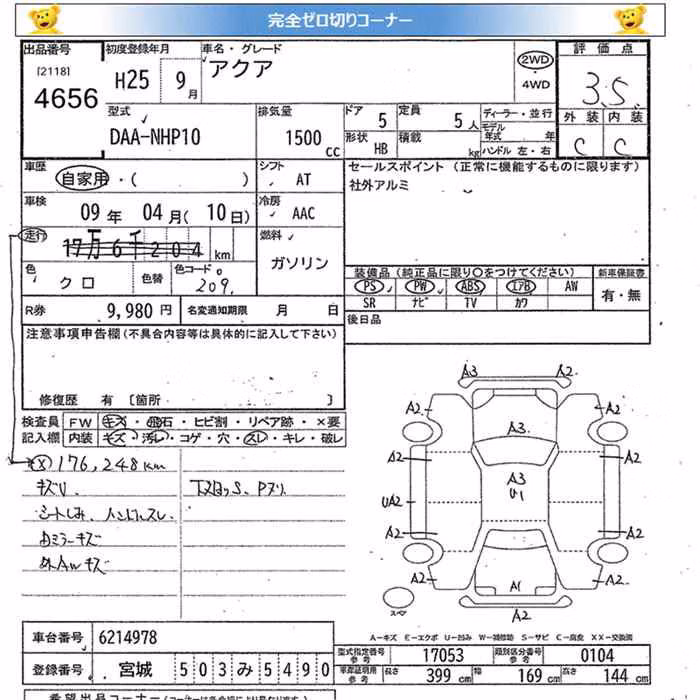 完全ゼロ切りコーナー
出品番号 初度登録年月 車名・グレード 評価点
[2118] 4656 H25 9月 アクア 2WD ・ 4WD 3.5
型式 排気量 ドア 定員 ディーラー・並行 外装 内装
DAA-NHP10 1500 cc 5 5人 モデル年式 年 C C
形状 HB 積載 kg ハンドル 左・右
車歴 シフト セールスポイント (正常に機能するものに限ります)
自家用・( ) AT 社外アルミ
車検 冷房
09年 04月(10日) AAC
走行 燃料
17万6千204 km ガソリン
色 色替 色コード 装備品 (純正品に限り○をつけてください) 新車保証書
クロ 209 PS PW ABS エアB AW 有・無
SR ナビ TV カワ
R券 9,980円 名変通知期限 月 日 後日品
注意事項申告欄 (不具合内容等は具体的に記入して下さい)
修復歴 有 [箇所 ]
検査員 FW キズ・飛石・ヒビ割・リペア跡・×要
記入欄 内装 キズ・汚レ・コゲ・穴・スレ・キレ・破レ
176,248km
キズU
シートしみ、ハンドルスレ
キズ
AWキズ
A3 A2
A2 A3 A2
A2 A3 U1 A2
UA2
A2 A2
A2 A1 A2
スペア A2
A-キズ E-エクボ U-凹み W-補修跡 S-サビ C-腐食 XX-交換済
車台番号 6214978
型式指定番号 参考 17053 類別区分番号 参考 0104
登録番号 宮城 503み5490
車庫証明用 参考 長さ 399 cm 幅 169 cm 高さ 144 cm
希望出品コーナー